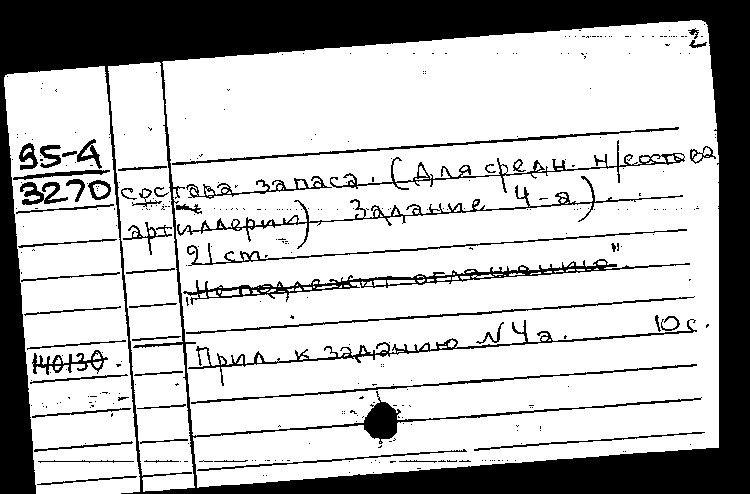 2
95-4
3270 состава запаса. (Для средн. н/состава
артиллерии). Задание 4-а).
21 cm.
"Не подлежит оглашению".
140130. Прил. к заданию N4а. 10 с.